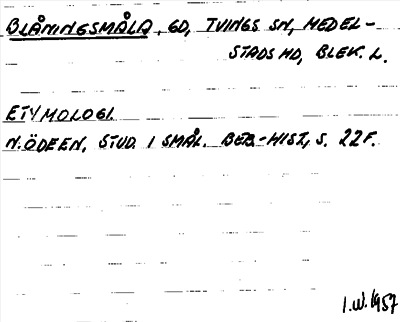 BLÅNINGSMÅLA, GD, TVINGS SN, MEDEL-
STADS HD, BLEK. L.
ETYMOLOGI.
N. ÖDEEN, STUD. I SMÅL. BEB.-HIST, S. 22 F.
I.W. 1957